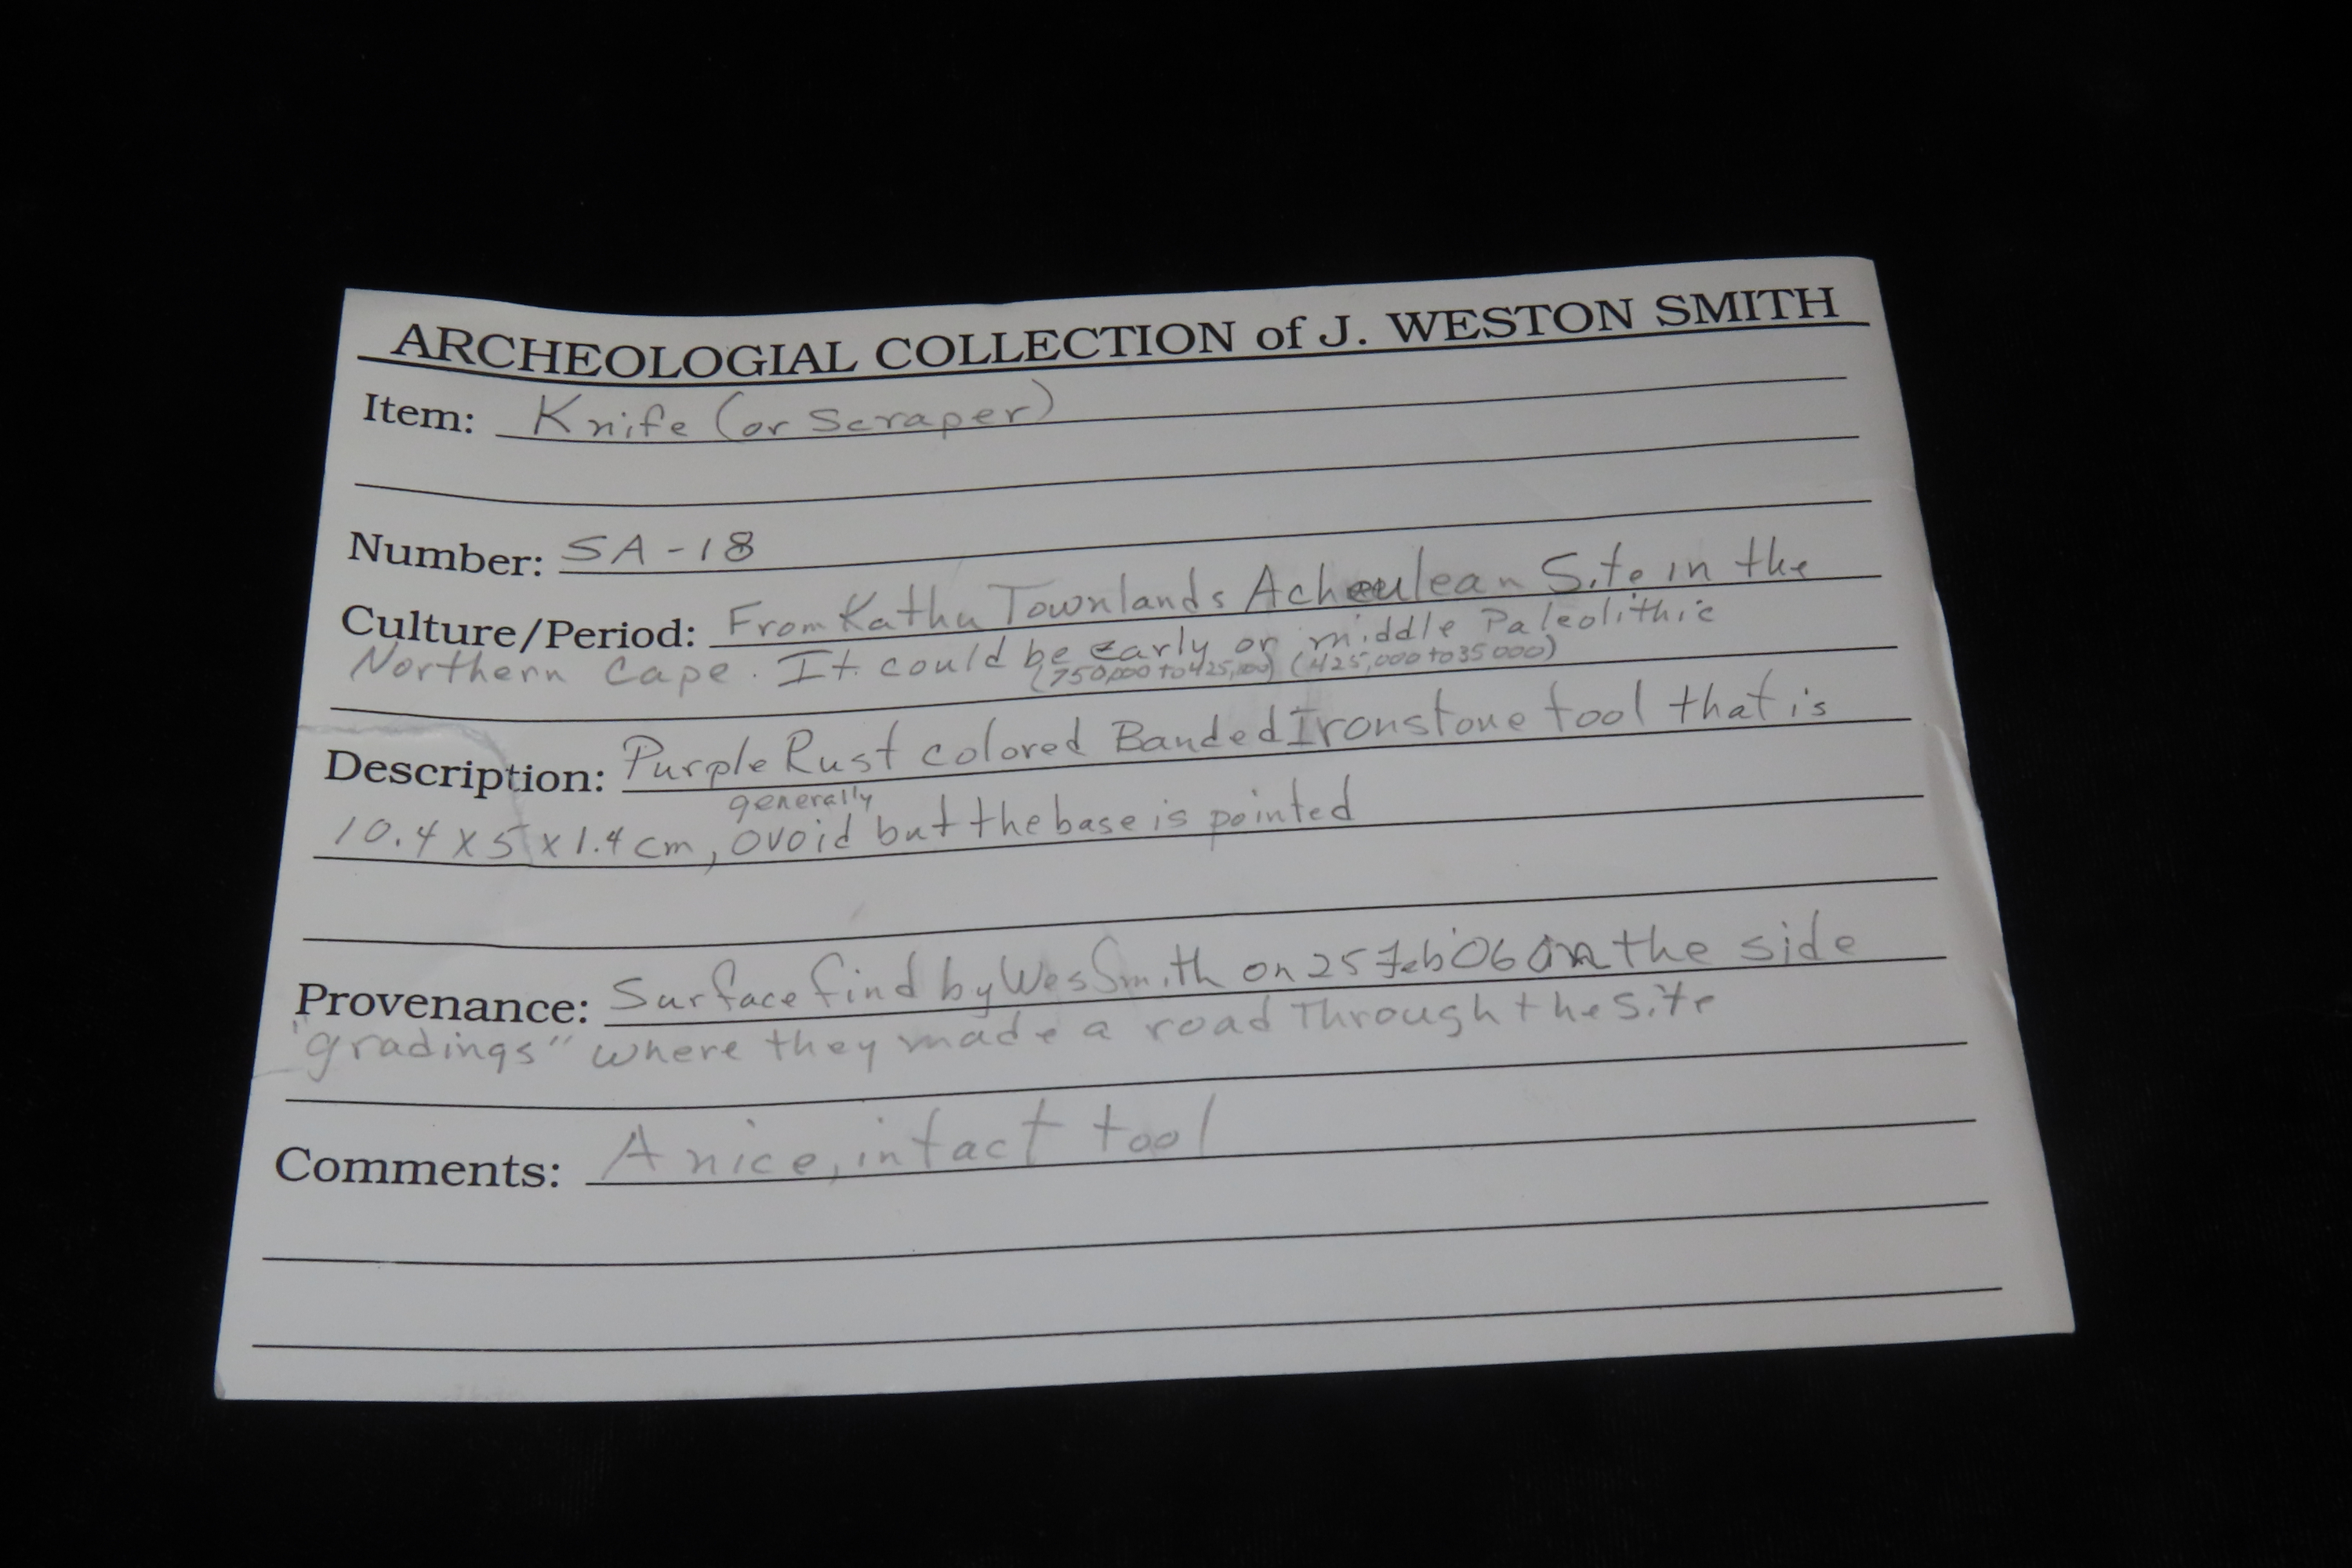 ARCHEOLOGIAL COLLECTION of J. WESTON SMITH
Item: Knife (or Scraper)
Number: SA-18
Culture/Period: From Kathu Townlands Acheulean Site in the
Northern Cape. It could be early or middle Paleolithic
(750,000 to 425,000) (425,000 to 35000)
Description: Purple Rust colored Banded Ironstone tool that is
generally
10.4 x 5 x 1.4 cm, ovoid but the base is pointed
Provenance: Surface find by Wes Smith on 25 Feb '06 on the side
"gradings" where they made a road through the site
Comments: A nice, intact tool